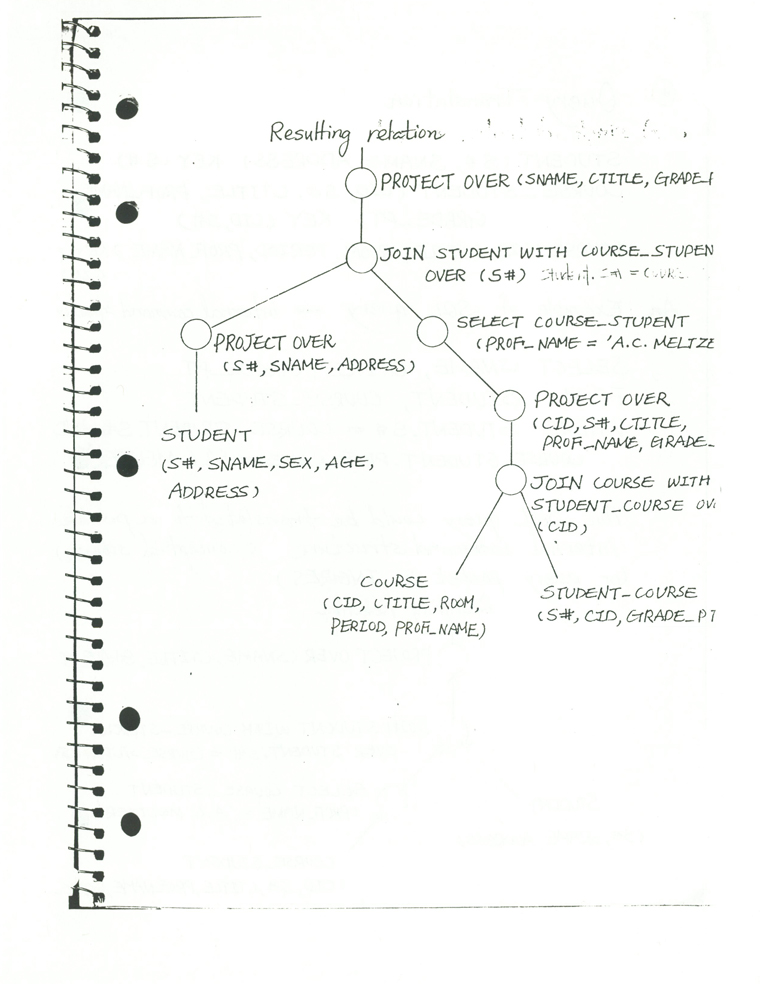 Resulting relation
PROJECT OVER (SNAME, CTITLE, GRADE_P
JOIN STUDENT WITH COURSE_STUDEN
OVER (S#)
PROJECT OVER
(S#, SNAME, ADDRESS)
SELECT COURSE_STUDENT
(PROF_NAME = 'A.C. MELIZE
PROJECT OVER
(CID, S#, CTITLE,
PROF_NAME, GRADE_
STUDENT
(S#, SNAME, SEX, AGE,
ADDRESS)
JOIN COURSE WITH
STUDENT_COURSE OV
(CID)
COURSE
(CID, CTITLE, ROOM,
PERIOD, PROF_NAME)
STUDENT-COURSE
(S#, CID, GRADE_PT